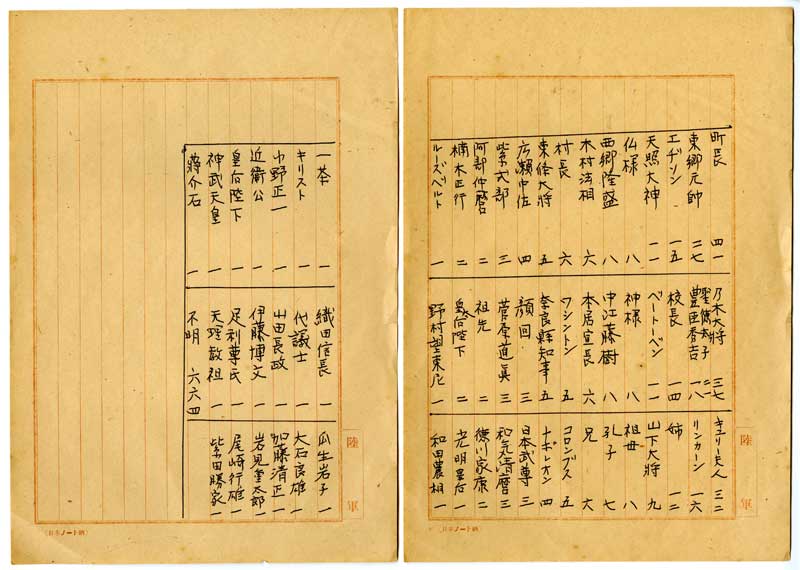 町長 四一
東郷元帥 二七
エヂソン 一五
天照大神 一一
仏様 八
西郷隆盛 八
木村法相 六
村長 六
東條大将 五
広瀬中佐 四
紫式部 三
阿部仲麿 二
楠木正行 二
ルーズベルト 一
乃木大将 三七
聖徳太子 二一
豊臣秀吉 一八
校長 一四
ベートーベン 一一
神様 八
中江藤樹 八
本居宣長 六
ワシントン 五
奈良縣知事 五
顔回 三
菅原道眞 三
祖先 二
皇后陛下 二
野村望東尼 一
キュリー夫人 三二
リンカーン 一六
姉 一二
山下大将 九
祖母 八
孔子 七
兄 六
コロンブス 五
ナポレオン 四
日本武尊 三
和気清麿 三
徳川家康 二
光明皇后 二
和田農相 一
陸軍
一茶 一
キリスト 一
中野正一 一
近衛公 一
皇后陛下 一
神武天皇 一
蒋介石 一
織田信長 一
代議士 一
山田長政 一
伊藤博文 一
足利尊氏 一
天理教祖 一
不明 六六四
瓜生岩子 一
大石良雄 一
加藤清正 一
岩見重太郎 一
尾崎行雄 一
柴田勝家 一
陸軍